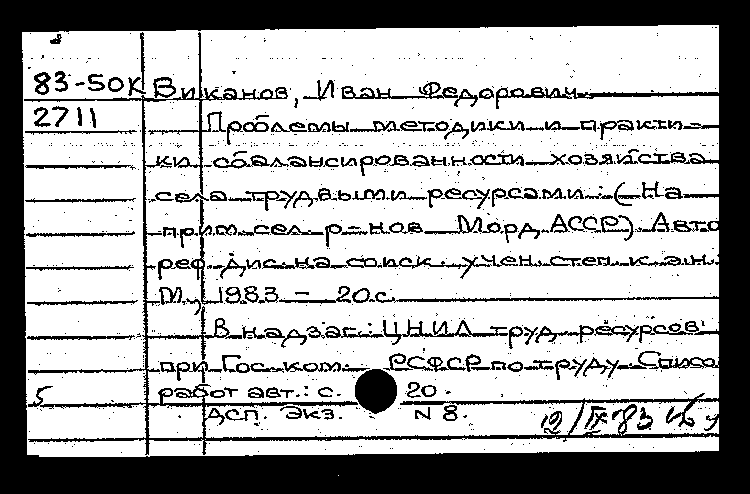 83-50К Виканов, Иван Федорович.
2711 Проблемы методики и практи-
ки сбалансированности хозяйства
села трудвыми ресурсами: (На
прим сел. р-нов Морд АССР). Авто
реф. дис. на соиск. учен. степ. к.э.н.
М., 1983 - 20 с.
В надзаг.: ЦНИЛ труд. ресурсов
при Гос. ком. РСФСР по труду. Списо
5 работ авт.: с. 20.
ДСП. Экз. N 8.
12/IX-83